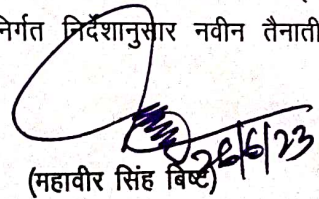 निर्गत निर्देशानुसार नवीन तैनाती
26/6/23
(महावीर सिंह बिष्ट)